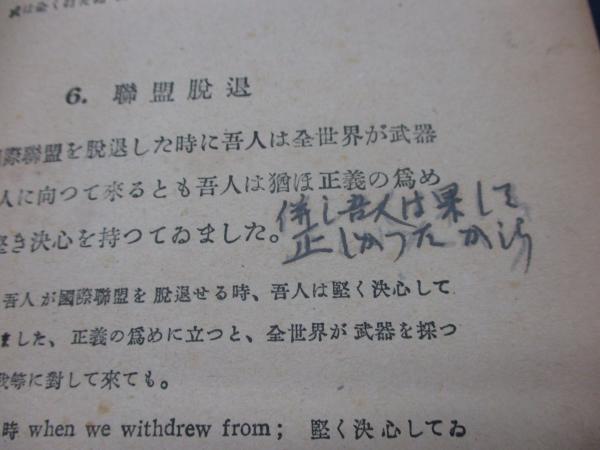 6. 聯盟脫退
際聯盟を脫退した時に吾人は全世界が武器
人に向つて來るとも吾人は猶ほ正義の爲め
堅き決心を持つてゐました。
併し吾人は果して
正しかつたかしら
吾人が國際聯盟を脫退せる時、吾人は堅く決心して
ました、正義の爲めに立つと、全世界が武器を採つ
我等に對して來ても。
時 when we withdrew from; 堅く決心してゐ